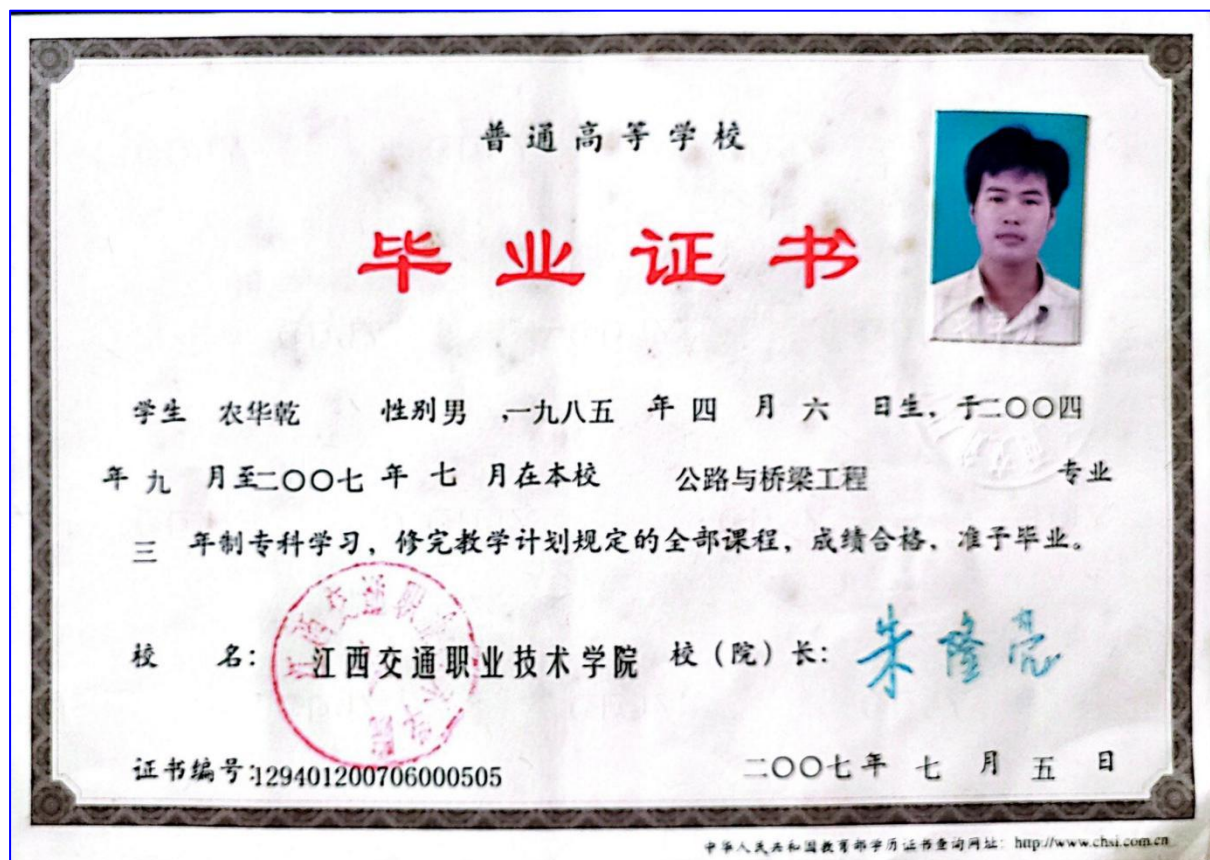 普通高等学校
毕业证书
学生 农华乾 性别 男 ,一九八五 年 四 月 六 日生，于二〇〇四
年 九 月至二〇〇七 年 七 月在本校 公路与桥梁工程 专业
三 年制专科学习，修完教学计划规定的全部课程，成绩合格，准予毕业。
江西交通职业技术学院
校 名：江西交通职业技术学院 校（院）长：朱隆亮
证书编号：129401200706000505 二〇〇七年 七 月 五 日
中华人民共和国教育部学历证书查询网址：http://www.chsi.com.cn